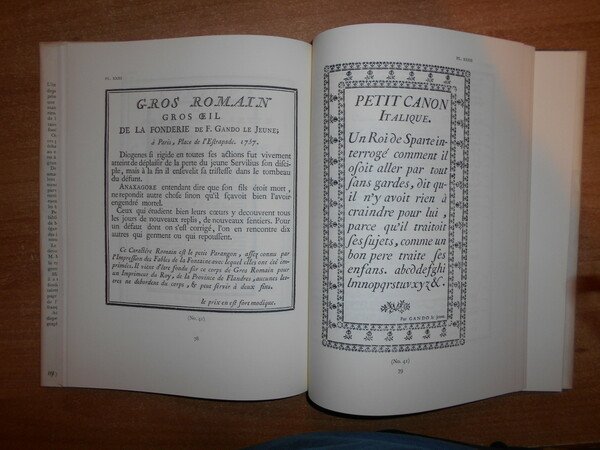 PL. XXIII
GROS ROMAIN
GROS ŒIL
DE LA FONDERIE DE F. GANDO LE JEUNE,
à Paris, Place de l'Estrapade. 1757.
Diogenes si rigide en toutes ses actions fut vivement
atteint de déplaisir de la perte du jeune Servilius son disci-
ple, mais à la fin il ensevelit sa tristesse dans le tombeau
du défunt.
ANAXAGORE entendant dire que son fils étoit mort,
ne repondit autre chose sinon qu'il sçavoit bien l'avoir
engendré mortel.
Ceux qui étudient bien leurs cœurs y decouvrent tous
les jours de nouveaux replis, de nouveaux sentiers. Pour
un défaut dont on s'est corrigé, l'on en rencontre dix
autres qui germent ou qui repoussent.
Ce Caractére Romain est le petit Parangon, assez connu par
l'Impression des Fables de la Fontaine avec lequel elles ont été im-
primées. Il vient d'être fondu sur ce corps de Gros Romain pour
un Imprimeur du Roy, de la Province de Flandres, aucunes let-
teres ne debordent du corps, & peut servir à deux fins.
le prix en est fort modique.
(No. 41)
78
PL. XXIII
PETIT CANON
ITALIQUE.
Un Roi de Sparte in-
terrogé comment il
osoit aller par tout
sans gardes, dit qu'
il n'y avoit rien à
craindre pour lui,
parce qu'il traitoit
ses sujets, comme un
bon pere traite ses
enfans. abcdefghi
lmnopqrstuvxyz&.
Par GANDO le jeune.
(No. 42)
79